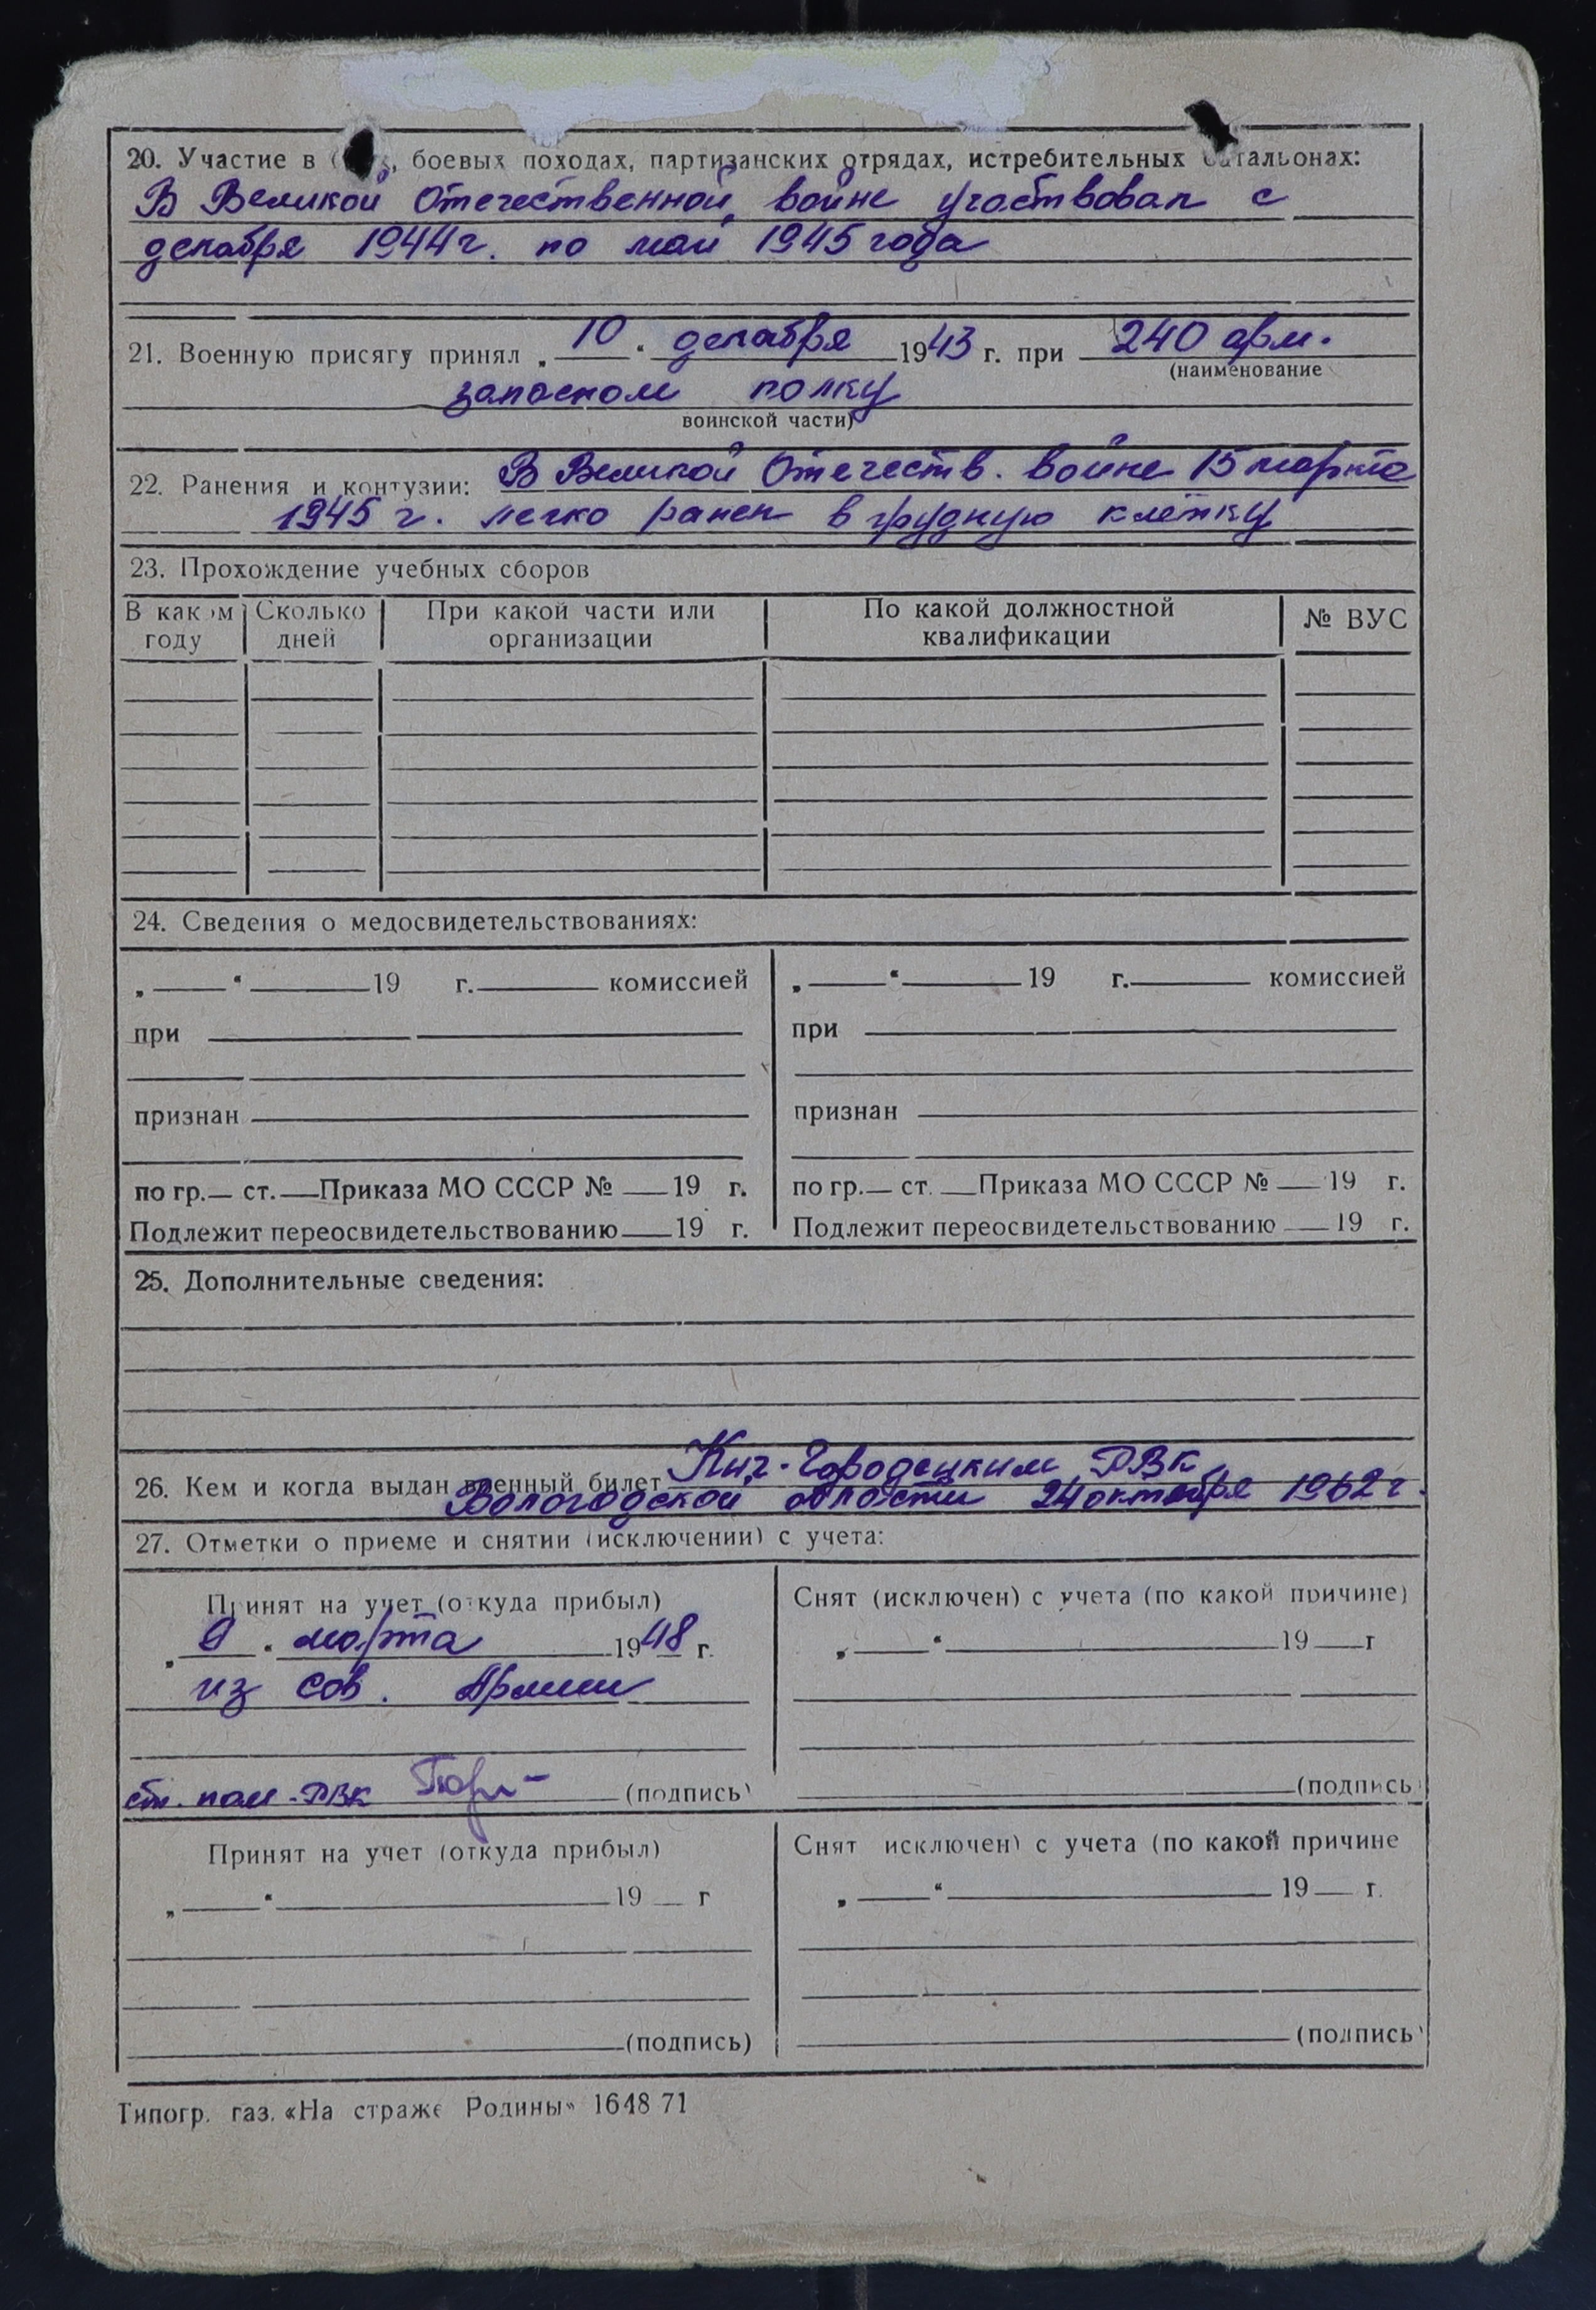 20. Участие в боевых походах, партизанских отрядах, истребительных батальонах:
В Великой Отечественной войне участвовал с
декабря 1944 г. по май 1945 года
21. Военную присягу принял „ 10 “ декабря 1943 г. при 240 арм.
(наименование
запасном полку
воинской части)
22. Ранения и контузии: В Великой Отечеств. войне 15 марта
1945 г. легко ранен в грудную клетку
23. Прохождение учебных сборов
В каком году
Сколько дней
При какой части или организации
По какой должностной квалификации
№ ВУС
24. Сведения о медосвидетельствованиях:
„ “ 19 г. комиссией
при
признан
по гр. ст. Приказа МО СССР № 19 г.
Подлежит переосвидетельствованию 19 г.
„ “ 19 г. комиссией
при
признан
по гр. ст. Приказа МО СССР № 19 г.
Подлежит переосвидетельствованию 19 г.
25. Дополнительные сведения:
26. Кем и когда выдан военный билет Кич-Городецким РВК
Вологодской области 24 октября 1962 г.
27. Отметки о приеме и снятии (исключении) с учета:
Принят на учет (откуда прибыл)
„ 9 “ марта 1948 г.
из Сов. Армии
ст. пом. РВК (подпись)
Снят (исключен) с учета (по какой причине)
„ “ 19 г
(подпись)
Принят на учет (откуда прибыл)
„ “ 19 г
(подпись)
Снят исключен) с учета (по какой причине
„ “ 19 г.
(подпись)
Типогр. газ. «На страже Родины» 1648 71